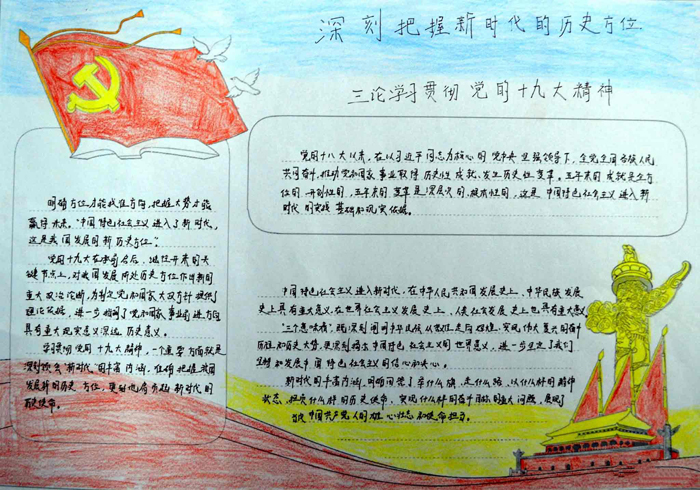 深刻把握新时代的历史方位
三论学习贯彻党的十九大精神
党的十八大以来，在以习近平同志为核心的党中央坚强领导下，全党全国各族人民
共同奋斗，推动党和国家事业取得历史性成就、发生历史性变革。五年来的成就是全方
位的、开创性的，五年来的变革是深层次的、根本性的，这是中国特色社会主义进入新
时代的实践基础和现实依据。
明确方位才能找准方向，把握大势才能
赢得未来。“中国特色社会主义进入了新时代，
这是我国发展的新历史方位”。
党的十九大在承前启后、继往开来的关
键节点上，对我国发展所处历史方位作出新的
重大政治论断，为制定党和国家大政方针提供了
理论依据，进一步指明了党和国家事业前进方向，
具有重大现实意义深远历史意义。
学习贯彻党的十九大精神，一个重要方面就是
深刻领会新时代的丰富内涵，准确把握我国
发展新的历史方位，更好地肩负起新时代的
历史使命。
中国特色社会主义进入新时代，在中华人民共和国发展史上、中华民族发展
史上具有重大意义，在世界社会主义发展史上、人类社会发展史上也具有重大意义
“三个意味着”，既深刻阐明中华民族从富起来走向强起来、实现伟大复兴的新中
历程和历史大势，更深刻揭示中国特色社会主义的世界意义，进一步坚定了我们
坚持和发展中国特色社会主义的信心和决心。
新时代的丰富内涵，明确回答了举什么旗、走什么路，以什么样的精神
状态、担负什么样的历史使命、实现什么样的奋斗目标的重大问题，展现了
当代中国共产党人的雄心壮志和使命担当。